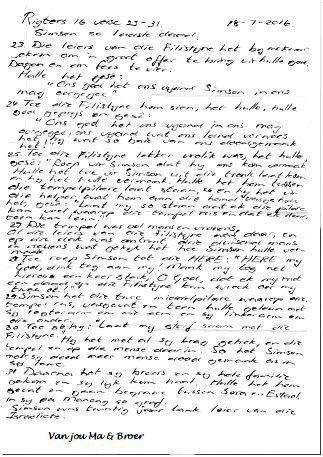 Rigters 16 vers 23-31. 18-7-2016
Simson se laaste daad.
23. Die leiers van die Filistyne het bymekaar
gekom om 'n groot offer te bring vir hulle god
Dagon en om fees te vier.
Hulle het gesê:
"Ons god het ons vyand Simson in ons
mag oorgegee"
24 Toe die Filistyne hom sien, het hulle, hulle
god geprys en gesê
"Ons god het ons vyand in ons mag
oorgegee, ons vyand wat ons land verwoes
het! Hy wat so baie van ons doodgemaak
het!"
25. Toe die Filistyne lekker vrolik was, het hulle
gesê: "Roep vir Simson dat hy ons kan vermaak
Hulle het toe vir Simson uit die tronk laat kom
en hy het hulle vermaak. Hulle het hom tussen
die tempelpilare laat staan,
het, gesê: "Laat my so staan dat ek die pilare
kan voel waarop die tempel rus en dat ek daar
teen kan leun."
27 Die tempel was vol mans en vrouens
Al die leiers van die Filistyne was daar, en
op die dak was omtrent drie duisend mans
en vrouens wat gekyk het hoe Simson hulle vermaak
28 Toe roep Simson tot die HERE: "HERE my
God, dink tog aan my! Maak my tog net
hierdie een keer sterk, O God, dat ek my met
een slag op die Filistyne kan wreek oor my
twee oë!"
29 Simson het die twee middelpilare waarop die
tempel rus, vasgevat en teen hulle geleun met
sy regterarm en die een en sy linkerarm en
die ander.
30 Toe sê hy: "Laat my sterf saam met die
Filistyne". Hy het met al sy krag gestoot, en die
tempel op die mense daar in. So het Simson
met sy dood meer mense dood gemaak as in
sy lewe.
31 Daarna het sy broers en sy hele familie
gekom en sy lyk kom haal. Hulle het hom
gevat en gaan begrawe tussen Sora en Estaol
in sy pa Manoag se graf.
Simson was twintig jaar lank leier van die
Israeliete.
Van jou Ma & Broer